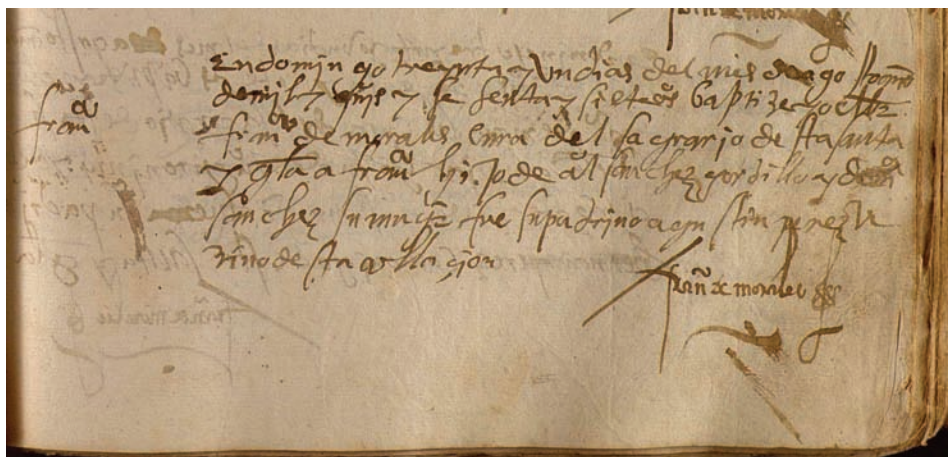 En domingo treynta y un dias del mes de ago
de mill y quis y sesenta y siete as baptize yo el br
franco de morales cura del sagrario de sta santa
yglia a franca hija de al sanchez gordillo y de
sanchez su muger fue su padrino agustin perez ve
zino de sta collaçion
franca
franco de morales